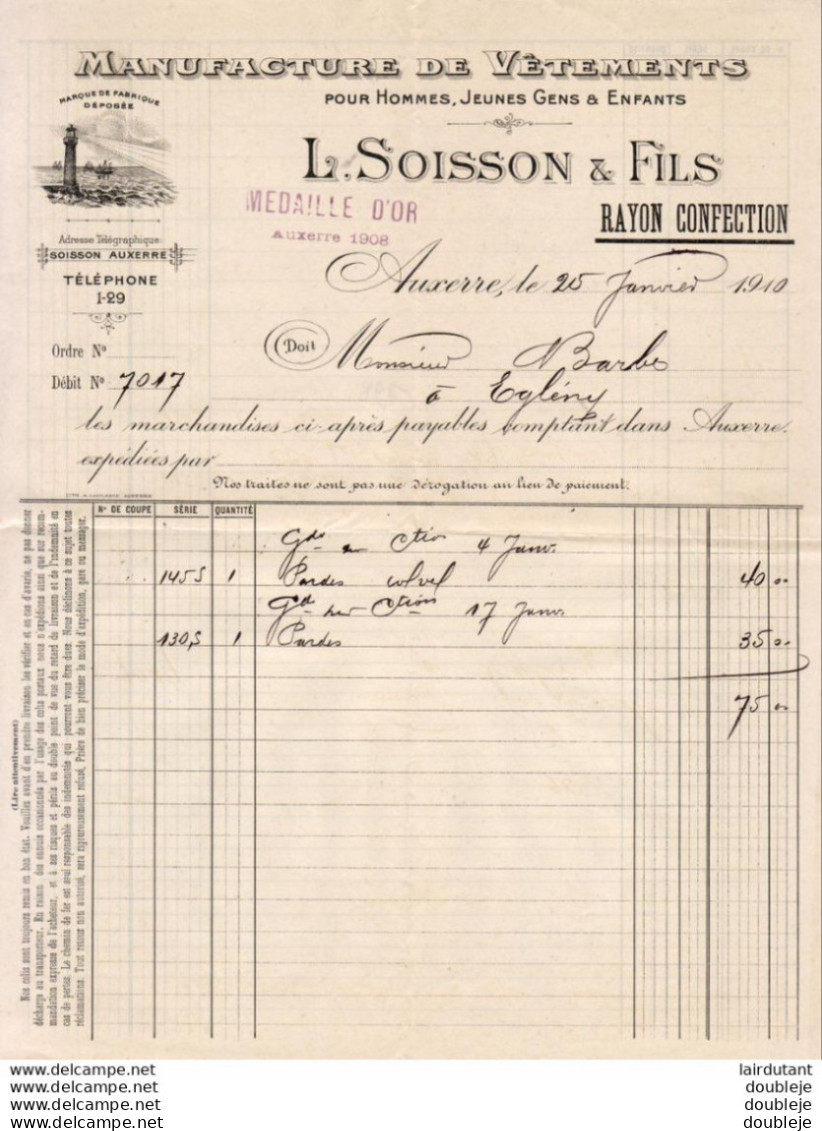 MANUFACTURE DE VÊTEMENTS
POUR HOMMES, JEUNES GENS & ENFANTS
MARQUE DE FABRIQUE
DÉPOSÉE
L. SOISSON & FILS
MEDAILLE D'OR
Auxerre 1908
RAYON CONFECTION
Adresse Télégraphique
SOISSON AUXERRE
TÉLÉPHONE
1-29
Auxerre, le 25 Janvier 1910
Ordre No
Doit Monsieur Barbe
Débit No 7017
à Eglény
les marchandises ci-après payables comptant dans Auxerre.
expédiées par
Nos traites ne sont pas une dérogation au lieu de paiement.
No DE COUPE SÉRIE QUANTITÉ
4 Janv.
145 S 1 Pardes 40 00
17 Janv
130 S 1 Pardes 35 00
75 00
(Lire attentivement)
Nos colis sont toujours remis en bon état. Veuillez avant d'en prendre livraison les vérifier et en cas d'avarie, ne pas donner
décharge au transporteur. En raison des ennuis occasionnés par l'usage des colis postaux nous n'expédions ainsi que sur recom-
mandation expresse de l'acheteur, et à ses risques et périls au double point de vue du retard du livraison et de l'indemnité en
cas de pertes. Le chemin de fer est seul responsable des indemnités qui pourront vous être dues. Nous déclinons à ce sujet toutes
réclamations. Tout retour non autorisé, sera rigoureusement refusé. Prière de bien préciser le mode d'expédition, gare ou messager.
www.delcampe.net
www.delcampe.net
www.delcampe.net
www.delcampe.net
lairdutant
doubleje
doubleje
doubleje